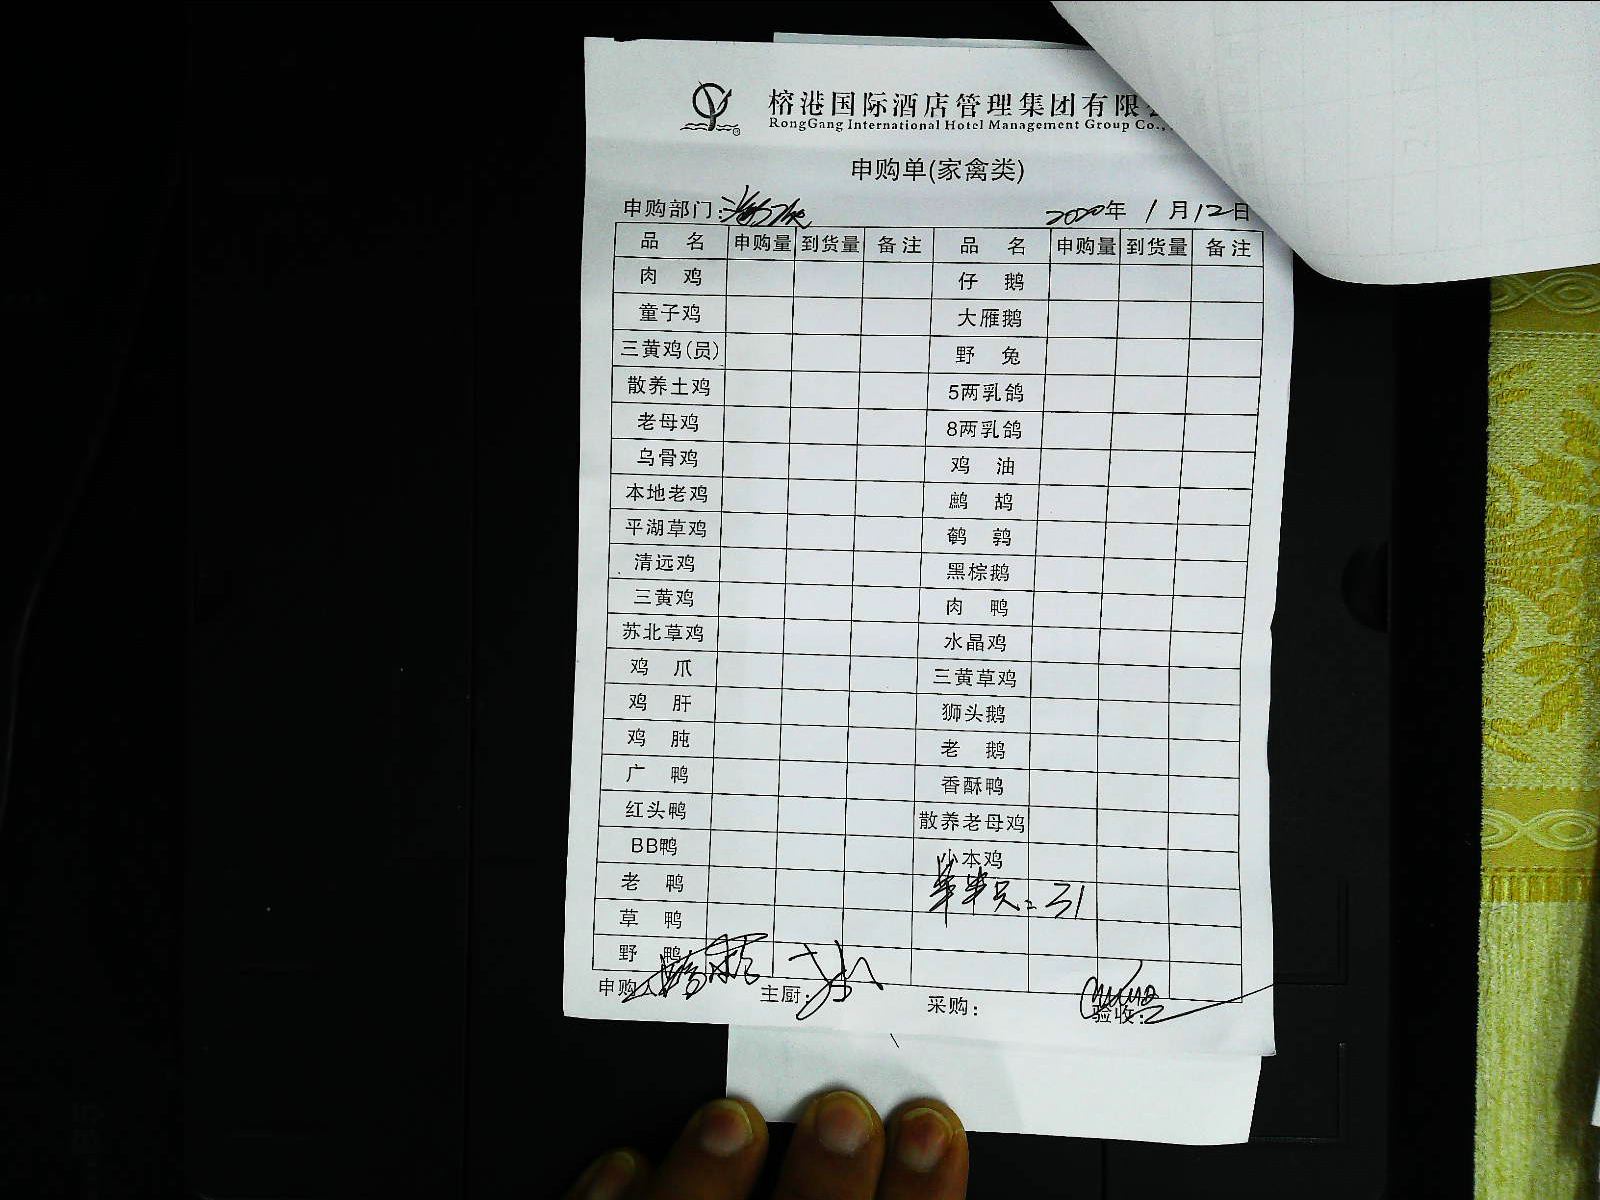 榕港国际酒店管理集团有限
RongGang International Hotel Management Group Co.,
申购单(家禽类)
申购部门: 2020年 1月12日
品 名 申购量 到货量 备注 品 名 申购量 到货量 备注
肉 鸡 仔 鹅
童子鸡 大雁鹅
三黄鸡(员) 野 兔
散养土鸡 5两乳鸽
老母鸡 8两乳鸽
乌骨鸡 鸡 油
本地老鸡 鹧 鸪
平湖草鸡 鹌 鹑
清远鸡 黑棕鹅
三黄鸡 肉 鸭
苏北草鸡 水晶鸡
鸡 爪 三黄草鸡
鸡 肝 狮头鹅
鸡 肫 老 鹅
广 鸭 香酥鸭
红头鸭 散养老母鸡
BB鸭 小本鸡
老 鸭 31
草 鸭
野 鸭
申购人 主厨: 采购: 验收: